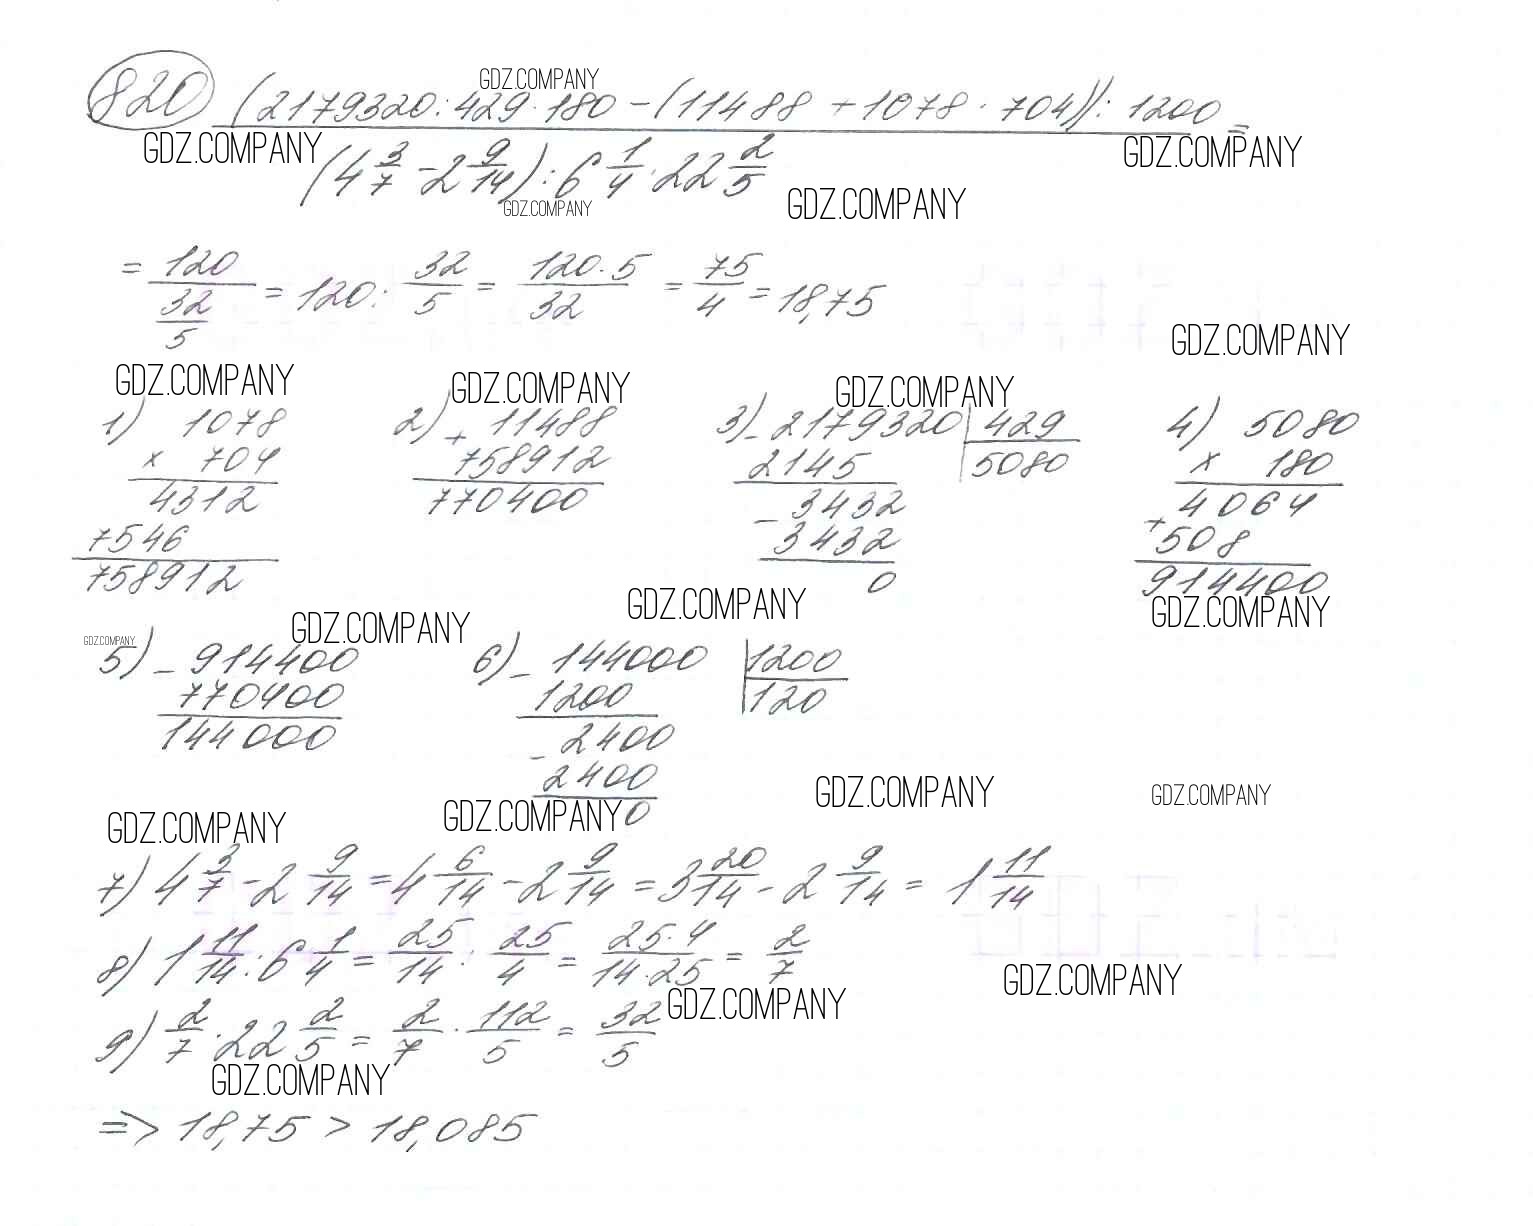 GDZ.COMPANY
820 (2179320:429·180-(11488+1078·704)):1200 =
GDZ.COMPANY GDZ.COMPANY
(4 3/7 - 2 9/14) : 6 1/4 · 22 2/5
GDZ.COMPANY GDZ.COMPANY
= 120/(32/5) = 120 : 32/5 = 120·5/32 = 75/4 = 18,75
GDZ.COMPANY
GDZ.COMPANY GDZ.COMPANY GDZ.COMPANY
1) 1078 2) + 11488 3) - 2179320 | 429 4) 5080
x 704 758912 2145 5080 x 180
4312 770400 - 3432 + 4064
7546 3432 508
758912 0 914400
GDZ.COMPANY GDZ.COMPANY GDZ.COMPANY
GDZ.COMPANY
5) - 914400 6) - 144000 | 1200
770400 1200 120
144000 - 2400
2400
0
GDZ.COMPANY GDZ.COMPANY GDZ.COMPANY GDZ.COMPANY
7) 4 3/7 - 2 9/14 = 4 6/14 - 2 9/14 = 3 20/14 - 2 9/14 = 1 11/14
8) 1 11/14 : 6 1/4 = 25/14 : 25/4 = 25·4/14·25 = 2/7
GDZ.COMPANY GDZ.COMPANY
9) 2/7 · 22 2/5 = 2/7 · 112/5 = 32/5
GDZ.COMPANY
=> 18,75 > 18,085